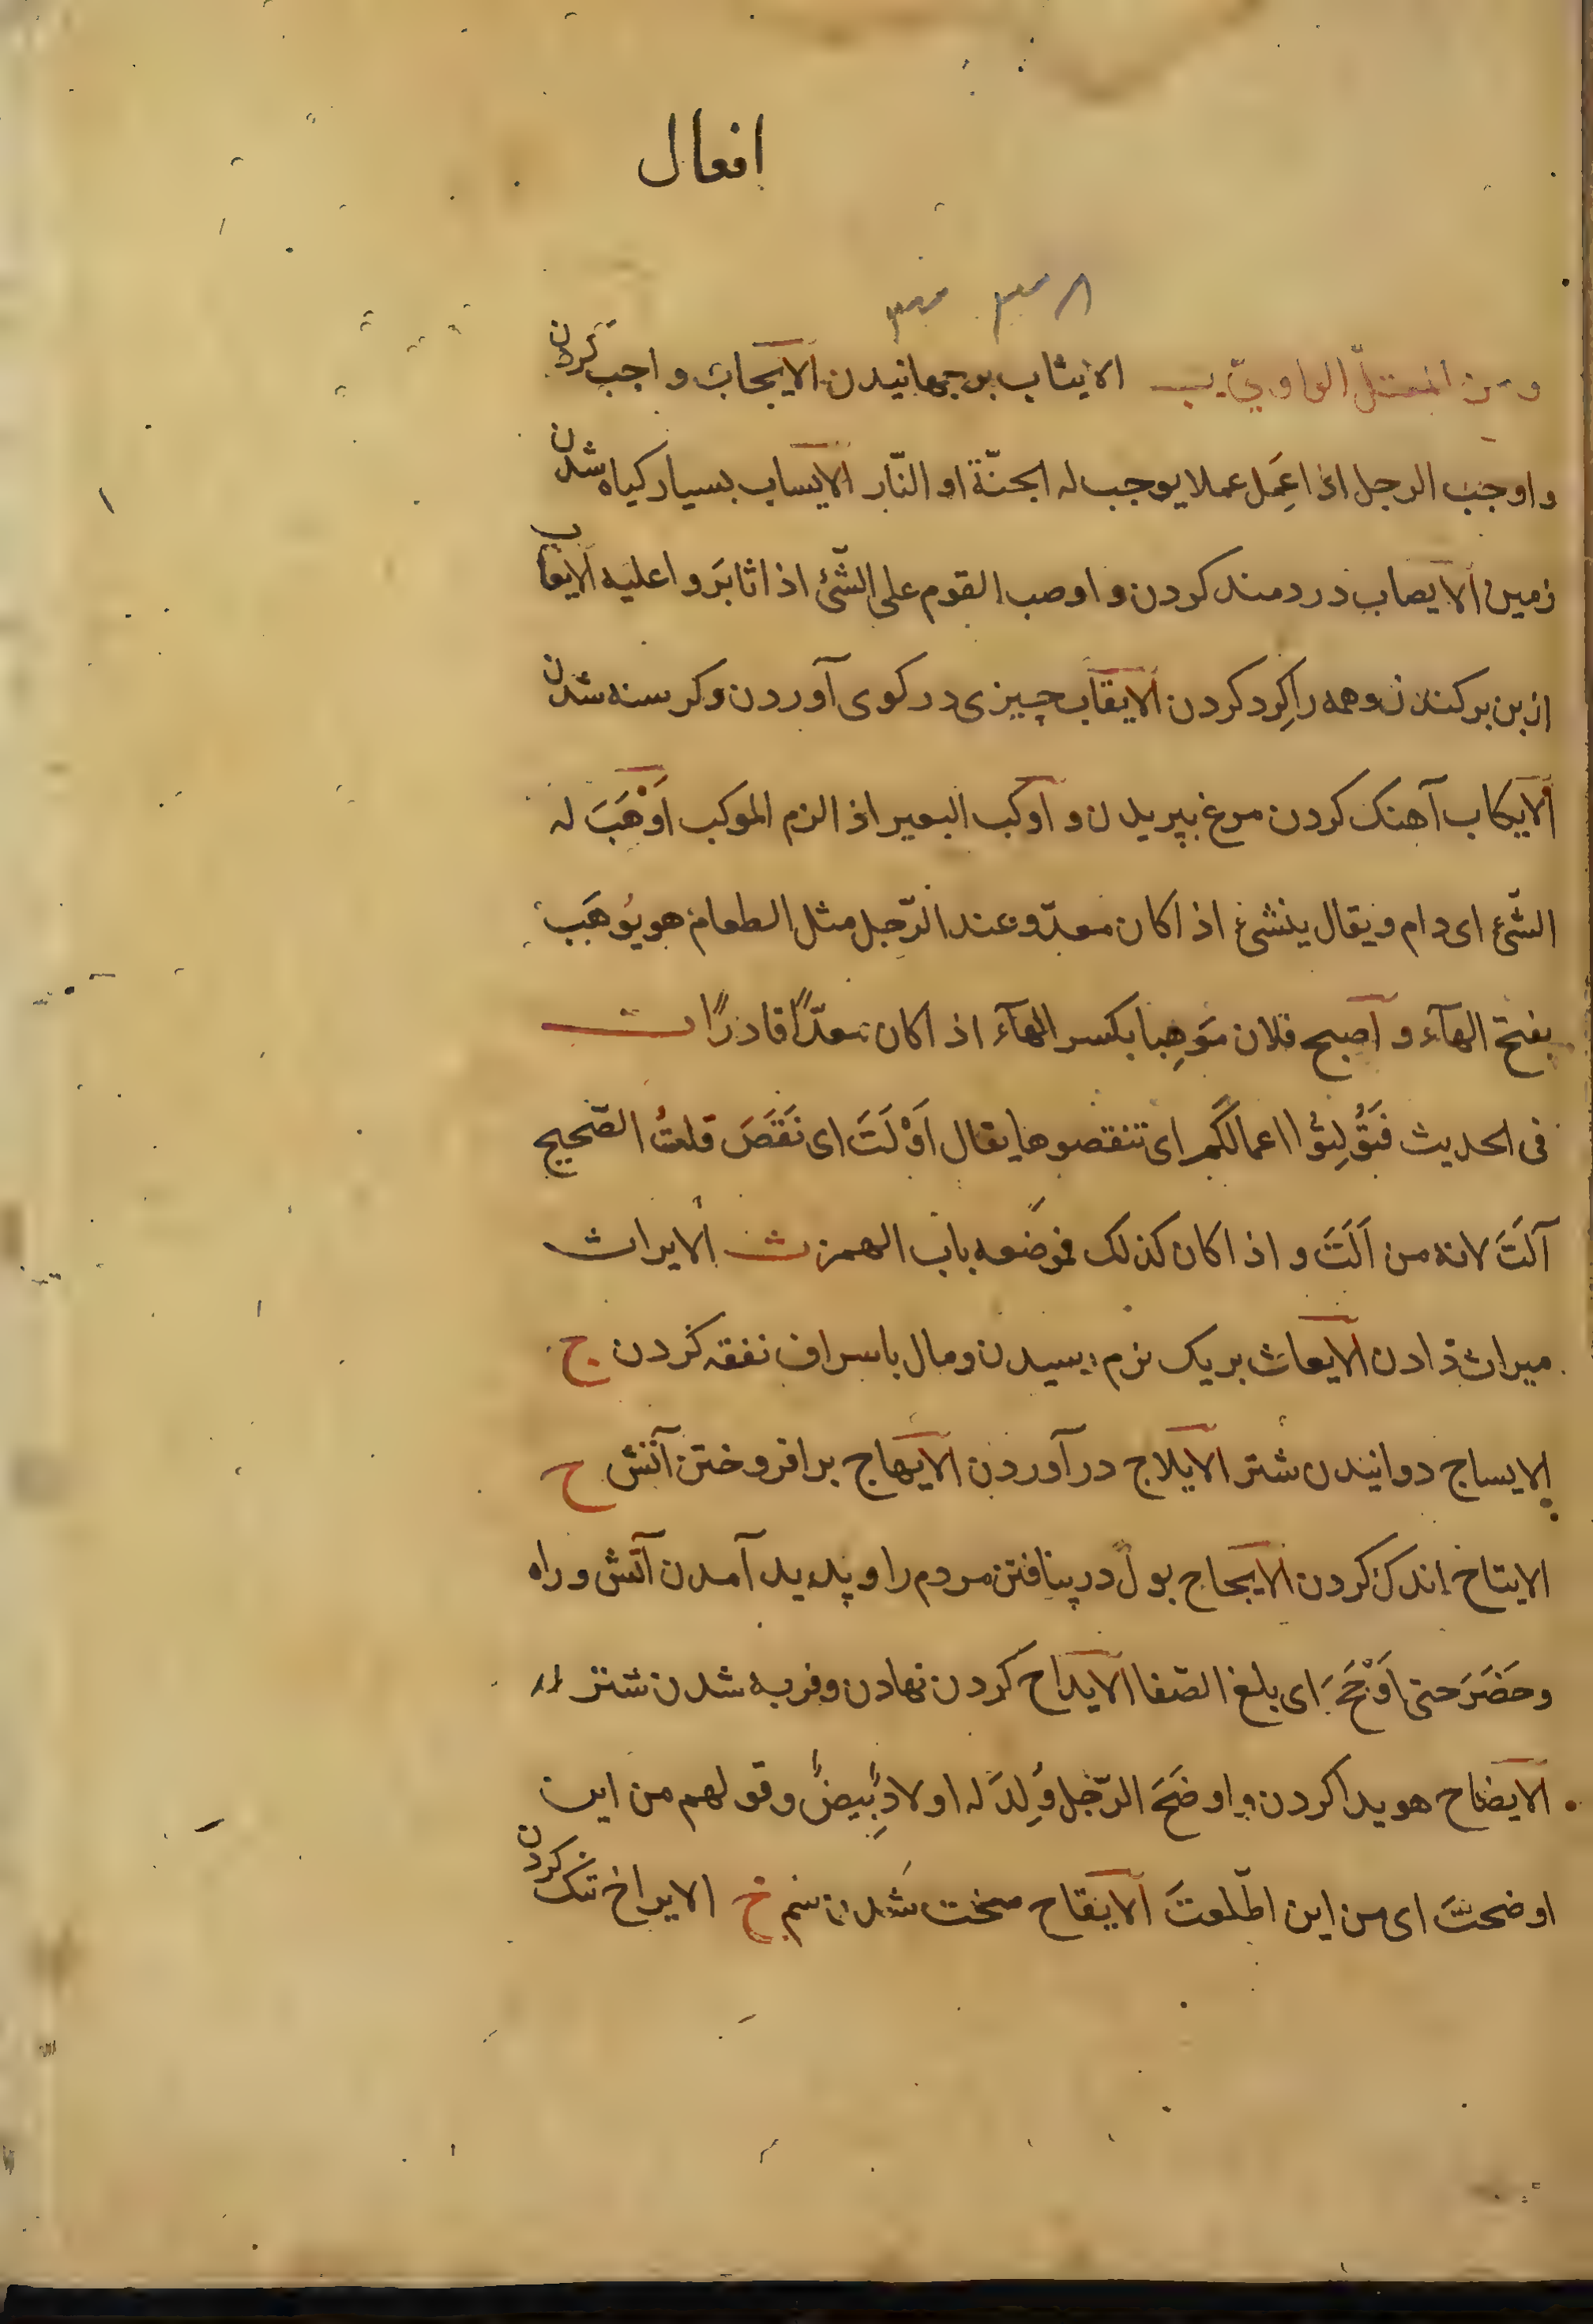 افعال
ومن المعتلّ الواويّ ب الايثاب برجهانيدن الايجاب واجب كردن
واوجب الرجل اذا عَمِل عملا يوجب له الجنّة او النّار الايساب بسيار كياه شدن
زمين الايصاب دردمند كردن واوصب القوم على الشّئ اذا ثابَروا عليه الايعاب
از بن بركندن وهمه را كِرد كردن الايقاب چيزى در كوى آوردن وكرسنه شدن
الايكاب آهنك كردن مرغ بپريدن و اوكب البعير اذا لزم الموكب اَوْهَبَ له
الشّئ اى دام ويقال ينشئ اذا كان معدّو عند الرّجل مثل الطعام هو يُوهَب
بفتح الهآء و اصبح فلان مَوهِبا بكسر الهآء اذا كان معدّا قادرًا ت
فى الحديث فَتُوْلِتُوْا اعمالكم اى تنقصوها يقال اَوْلَتَ اى نَقَصَ قلتُ الصّحيح
آلَتَ لانه من اَلَتَ و اذا كان كذلك فموضعه باب الهمز ث الايراث
ميراث دادن الايعاث بريك نرم رسيدن ومال باسراف نفقه كردن ج
الايساج دوانيدن شتر الايلاج درآوردن الايهاج برافروختن آتش ح
الايتاح اندك كردن الايجاح بول در پنافتن مردم را و پديد آمدن آتش و راه
وحَضَرَ حتى اَوْجَحَ اى بلغ الصفا الايداح كردن نهادن وفربه شدن شتر
الايضاح هويدا كردن و اوضَحَ الرّجل وُلِدَ له اولادٌ بِيضٌ وقولهم من اين
اوضحتَ اى من اين اطّلعتَ الايقاح سخت شدن سم خ الايراخ تنك كردن